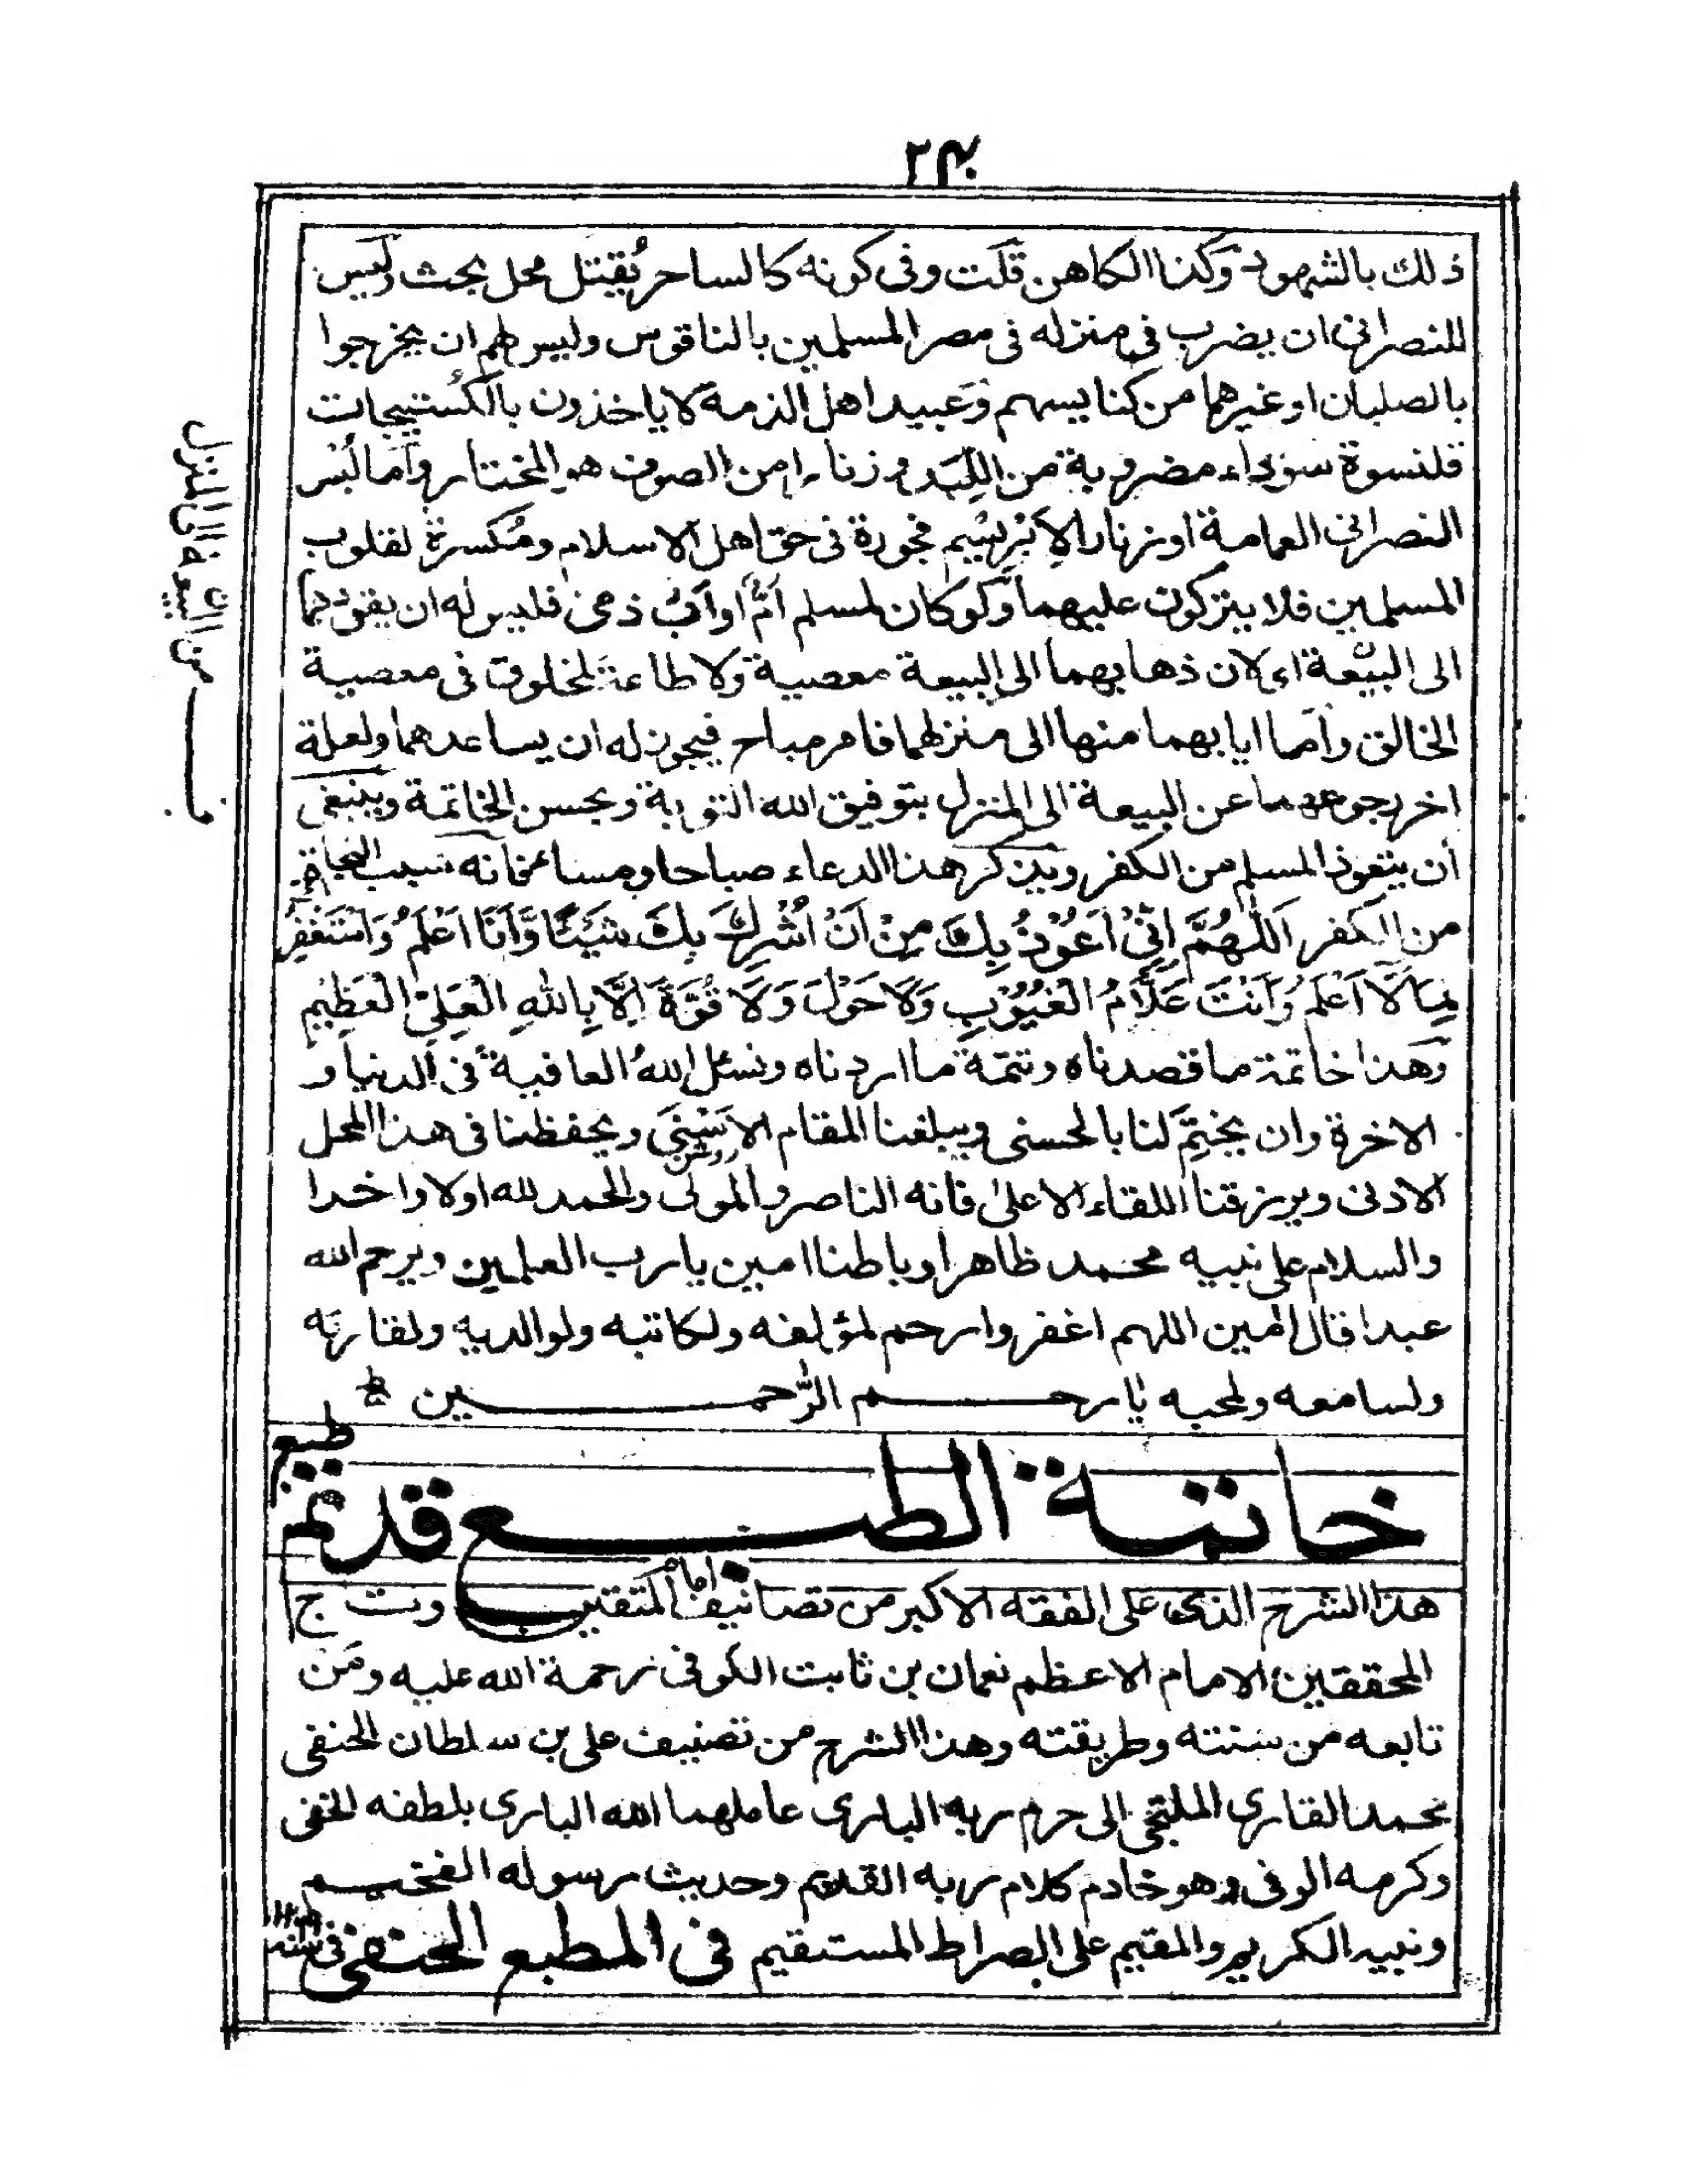 ۲۴۰
ذلك بالشهود وكذا الكاهن قلت وفى كونه كالساحر يُقتل محل بحث وليس
للنصرانى ان يضرب فى منزله فى مصر المسلمين بالناقوس وليس لهم ان يخرجوا
بالصلبان اوغيرها من كنايسهم وعبيد اهل الذمة لا ياخذون بالكُستيجات
قلنسوة سوداء مضروبة من اللِبَد وزنارا من الصوف هو المختار واما لُبس
النصرانى العمامة اوزنار الاِبْرِيسيم فجورة فى حق اهل الاسلام ومُكسرة لقلوب
المسلمين فلا يتركون عليهما ولو كان لمسلم اُمٌّ او اَبٌ ذمى فليس له ان يقودهما
الى البيعة اى لان ذهابهما الى البيعة معصية ولا طاعة لمخلوق فى معصية
الخالق واما ايابهما منها الى منزلهما فامر مباح فيجوز له ان يساعدهما ولعلة
اخر رجوعهما عن البيعة الى المنزل بتوفيق الله التوبة وبحسن الخاتمة وينبغى
من البيعة الى المنزل
أن يتعوذ المسلم من الكفر ويذكر هذا الدعاء صباحا ومساء فانه سبب النجاة
من الكفر اَللّٰهُمَّ اِنِّىْ اَعُوْذُ بِكَ مِنْ اَنْ اُشْرِكَ بِكَ شَيْئًا وَّاَنَا اَعْلَمُ وَاَسْتَغْفِرُ
لِمَا لَا اَعْلَمُ وَاَنْتَ عَلَّامُ الْغُيُوْبِ وَلَا حَوْلَ وَلَا قُوَّةَ اِلَّا بِاللهِ الْعَلِىِّ الْعَظِيْمِ
وهذا خاتمة ما قصدناه وتتمة ما اردناه ونسئل الله العافية فى الدنيا و
الاخرة وان يختم لنا بالحسنى ويبلغنا المقام الاسنى ويحفظنا فى هذا المحل
الادنى ويرزقنا اللقاء الاعلى فانه الناصر والمولى والحمد لله اولا واخرا
والسلام على نبيه محمد ظاهرا وباطنا امين يا رب العلمين ويرحم الله
عبدا قال امين اللهم اغفر وارحم لمؤلفه ولكاتبه ولوالديه ولقارئه
ولسامعه ولمحبه يا ارحم الرّحمين
خاتمة الطبع قد تم طبع
هذا الشرح الذى على الفقه الاكبر من تصانيف امام المتقين وتاج
المحققين الامام الاعظم نعمان بن ثابت الكوفى رحمة الله عليه ومَن
تابعه من سنته وطريقته وهذا الشرح من تصنيف على بن سلطان الحنفى
محمد القارى الملتجى الى حرم ربه البارى عاملهما الله البارى بلطفه الخفى
وكرمه الوفى وهو خادم كلام ربه القديم وحديث رسوله الفخيم
ونبيه الكريم والمقيم على الصراط المستقيم فى المطبع الحنفى فى سنه